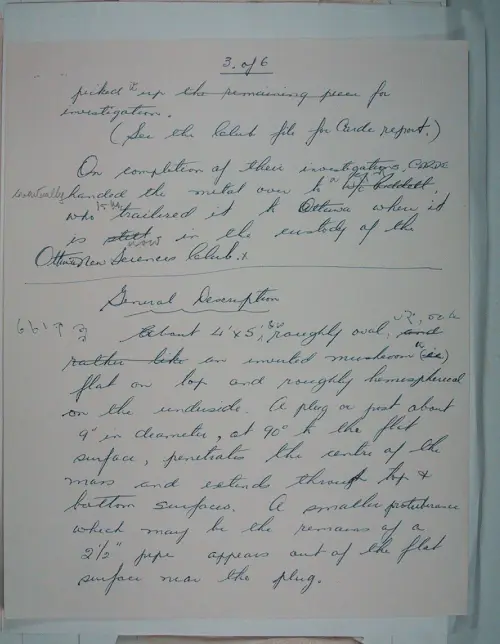 3 of 6
picked it up the remaining piece for
investigation.
(See the Club file for Carde report.)
On completion of their investigations, CARDE
eventually handed the metal over to W/C
who trailered it to Ottawa where it
is still now in the custody of the
Ottawa New Sciences Club.
General Description
About 4' x 5', roughly oval, and
rather like an inverted mushroom
flat on top and roughly hemispherical
on the underside. A plug or post about
9" in diameter, at 90° to the flat
surface, penetrates the centre of the
mass and extends through top &
bottom surfaces. A smaller protuberance
which may be the remains of a
2½" pipe appears out of the flat
surface near the plug.